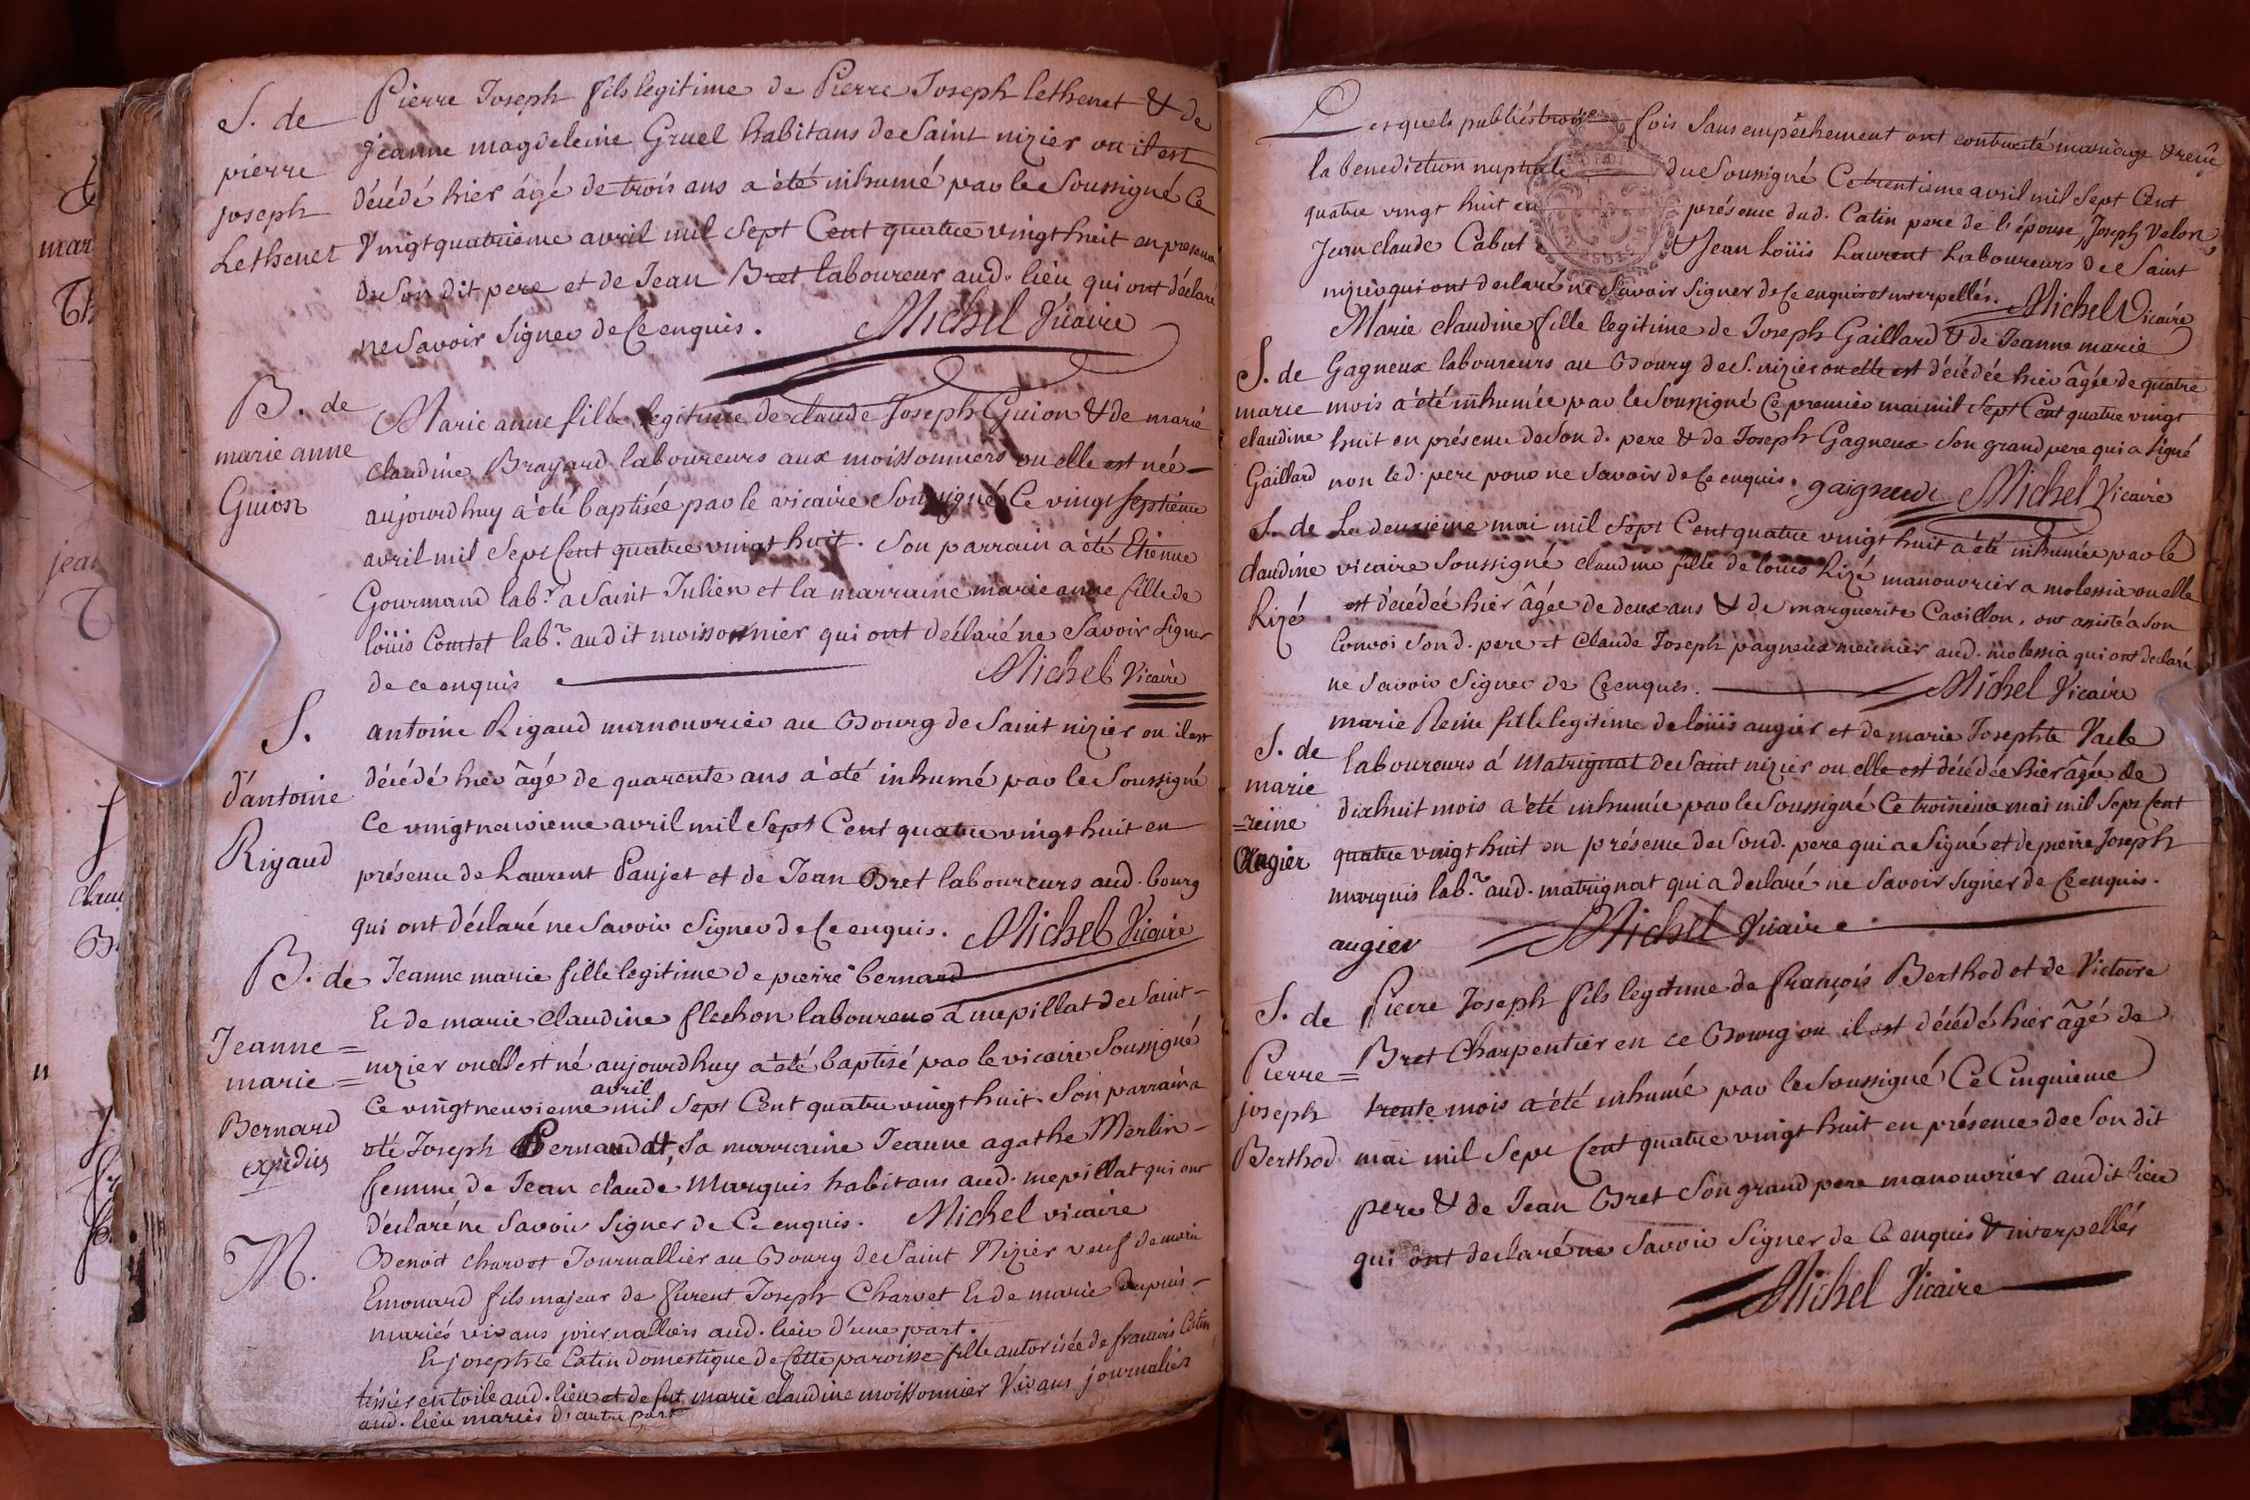 S. de
pierre
joseph
Lethenet
Pierre Joseph fils legitime de Pierre Joseph lethenet & de
jeanne magdeleine Gruel habitans de Saint nizier ou il est
décédé hier âgé de trois ans a été inhumé par le Soussigné Ce
Vingt quatrieme avril mil Sept Cent quatre vingt huit en presence
de Son dit pere et de Jean Bret laboureur aud. lieu qui ont déclaré
ne Savoir Signer de Ce enquis. Michel Vicaire
B. de
marie anne
Guion
Marie anne fille legitime de claude Joseph Guion & de marie
claudine Brayard laboureurs aux moissonniers ou elle est née
aujourdhuy a été baptisée par le vicaire Soussigné Ce vingt septieme
avril mil Sept Cent quatre vingt huit. Son parrain a été Etienne
Gourmand labr. a Saint Julien et la marraine marie anne fille de
loüis Comtet labr. audit moissonnier qui ont déclaré ne Savoir Signer
de ce enquis Michel Vicaire
S.
d'antoine
Rigaud
antoine Rigaud manouvrier au Bourg de Saint nizier ou il est
décédé hier âgé de quarente ans a été inhumé par le Soussigné
Ce vingt neuvieme avril mil Sept Cent quatre vingt huit en
présence de Laurent Paujet et de Jean Bret laboureurs aud. bourg
qui ont déclaré ne Savoir Signer de Ce enquis. Michel Vicaire
B. de
Jeanne =
marie =
Bernard
expédiés
Jeanne marie fille legitime de pierre bernard
& de marie claudine flechon laboureur á mepillat de Saint-
nizier ou ell est né aujourdhuy a été baptisé par le vicaire Soussigné
Ce vingt neuvieme avril mil Sept Cent quatre vingt huit. Son parrain a
été Joseph Bernaud et, Sa marraine Jeanne agathe Merlin-
femme de Jean claude Marquis habitans aud. mepillat qui ont
déclaré ne Savoir Signer de Ce enquis. Michel vicaire
M.
Benoit charvet Journallier au Bourg de Saint Nizier veuf de marie
Emonard fils majeur de flurent Joseph Charvet & de marie Dupuis-
mariés vivans journalliers aud. lieu d'une part.
& josephte Catin domestique de Cette paroisse fille autorisée de francois Catin
tissier en toile aud. lieu et de fut marie claudine moissonnier Vivans journalier
aud. lieu mariés d'autre part
Lesquels publiés trois fois Sans empêchement ont contracté mariage & reçu
la benediction nuptiale du Soussigné Ce trentieme avril mil Sept Cent
quatre vingt huit en présence dud. Catin pere de l'épouse, Joseph Velon,
Jean claude Cabut & Jean Loüis Laurent Laboureurs de Saint
nizier qui ont declaré ne Savoir Signer de Ce enquis et interpellés. Michel Vicaire
S. de
marie
claudine
Gaillard
Marie claudine fille legitime de Joseph Gaillard & de Jeanne marie
Gagneux laboureurs au Bourg de S. nizier ou elle est décédée hier âgée de quatre
mois a été inhumée par le Soussigné Ce premier mai mil Sept Cent quatre vingt
huit en présence de Son d. pere & de Joseph Gagneux Son grand pere qui a Signé
non led. pere pour ne Savoir de Ce enquis. gaigneux Michel Vicaire
S. de
claudine
Rizé
Le deuxieme mai mil Sept Cent quatre vingt huit a été inhumée par le
vicaire Soussigné claudine fille de louis Rizé manouvrier a molessia ou elle
est décédée hier âgée de deux ans & de marguerite Cavillon, ont assisté á Son
Convoi Son d. pere et Claude Joseph pagneux meunier aud. molessia qui ont declaré
ne Savoir Signer de Ce enquis. Michel Vicaire
S. de
marie
=reine
Augier
marie Reine fille legitime de loüis augier et de marie Josephte Vacle
laboureurs á Matrignat de Saint nizier ou elle est décédée hier âgée de
dixhuit mois a été inhumée par le Soussigné Ce troisieme mai mil Sept Cent
quatre vingt huit en présence de Sond. pere qui a Signé et de pierre Joseph
marquis labr. aud. matrignat qui a declaré ne Savoir Signer de Ce enquis.
augier Michel Vicaire
S. de
Pierre =
joseph
Berthod
Pierre Joseph fils legitime de françois Berthod et de Victoire
Bret Charpentier en ce Bourg ou il est décédé hier âgé de
trente mois a été inhumé par le Soussigné Ce Cinquieme
mai mil Sept Cent quatre vingt huit en présence de Son dit
pere & de Jean Bret Son grand pere manouvrier audit lieu
qui ont declaré ne Savoir Signer de Ce enquis & interpellés
Michel Vicaire